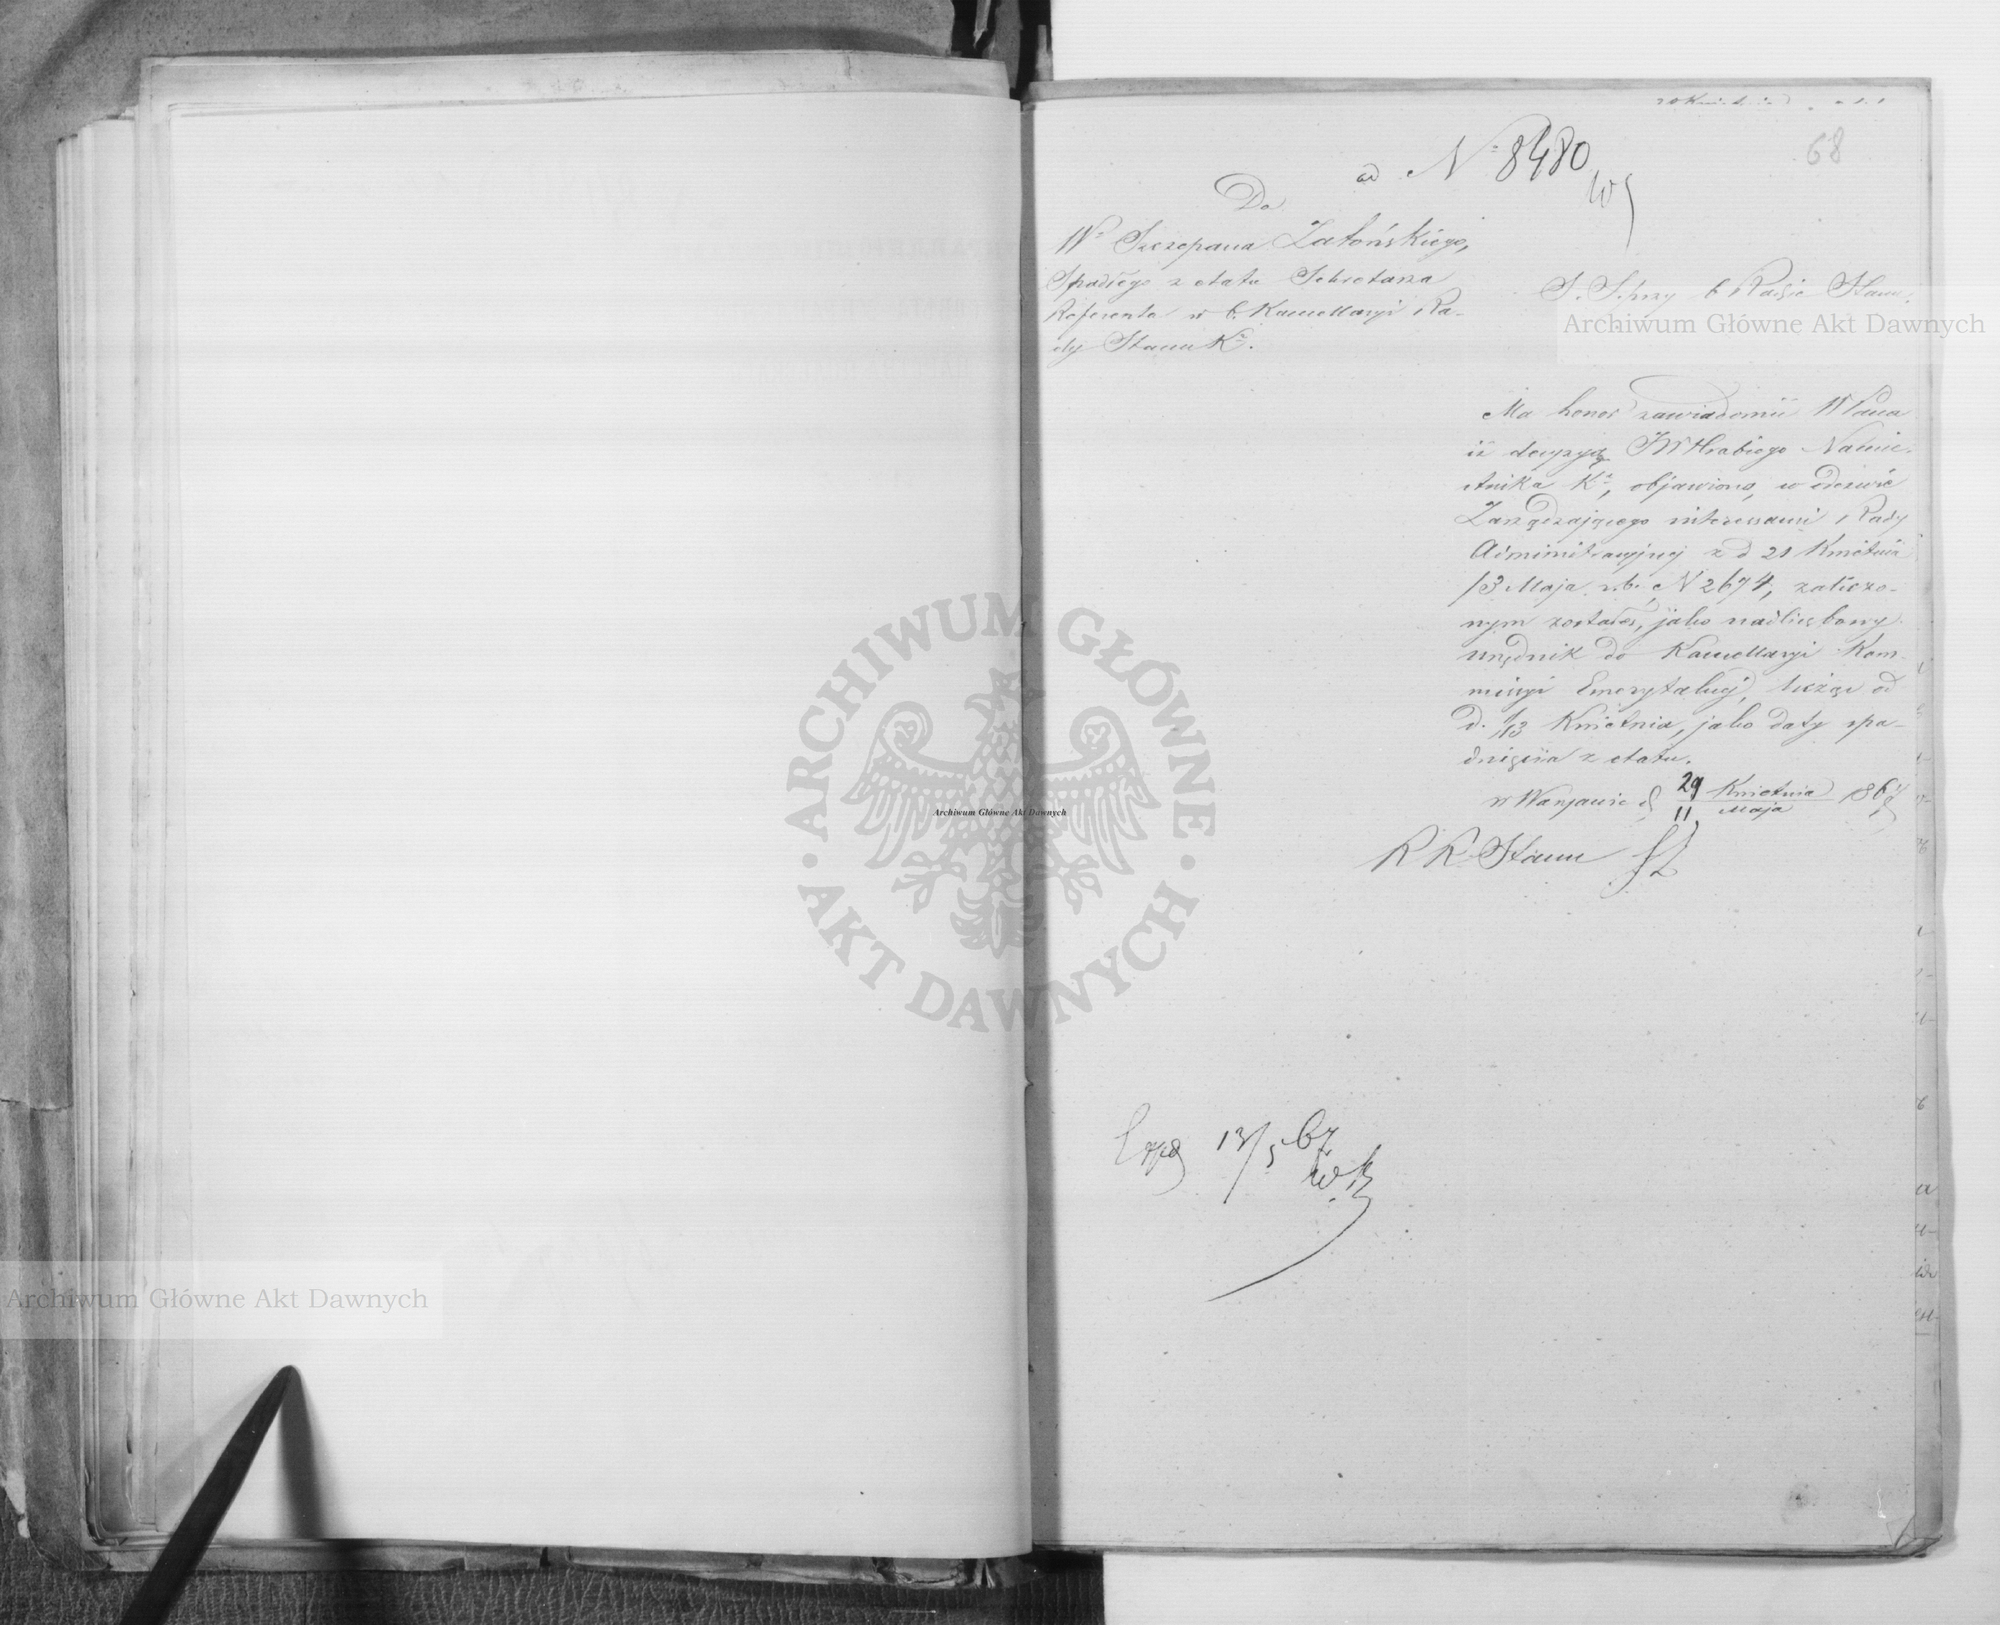 68
ad N 8480
Do
Wº Szczepana Zatońskiego,
Spadłego z etatu Sekretarza
Referenta w b. Kancellaryi Ra-
dy Stanu Kª.
S. S. przy b Radzie Stanu.
Ma honor zawiadomić WPana
iż decyzyą JW Hrabiego Namie-
stnika Kª, objawioną w odezwie
Zarządzającego interessami Rady
Administracyjnej z d 21 Kwietnia
/3 Maja r.b. N 2674, zaliczo-
nym zostałeś, jako nadliczbowy
urzędnik do Kancellaryi Kom-
missyi Emerytalnej, licząc od
d. 1/13 Kwietnia, jako daty spa-
dnięcia z etatu.
w Warszawie d 29 Kwietnia / 11 Maja 1867
R K Stanu
Exped 13/5 67
Archiwum Główne Akt Dawnych
Archiwum Główne Akt Dawnych
Archiwum Główne Akt Dawnych
ARCHIWUM GŁÓWNE · AKT DAWNYCH ·